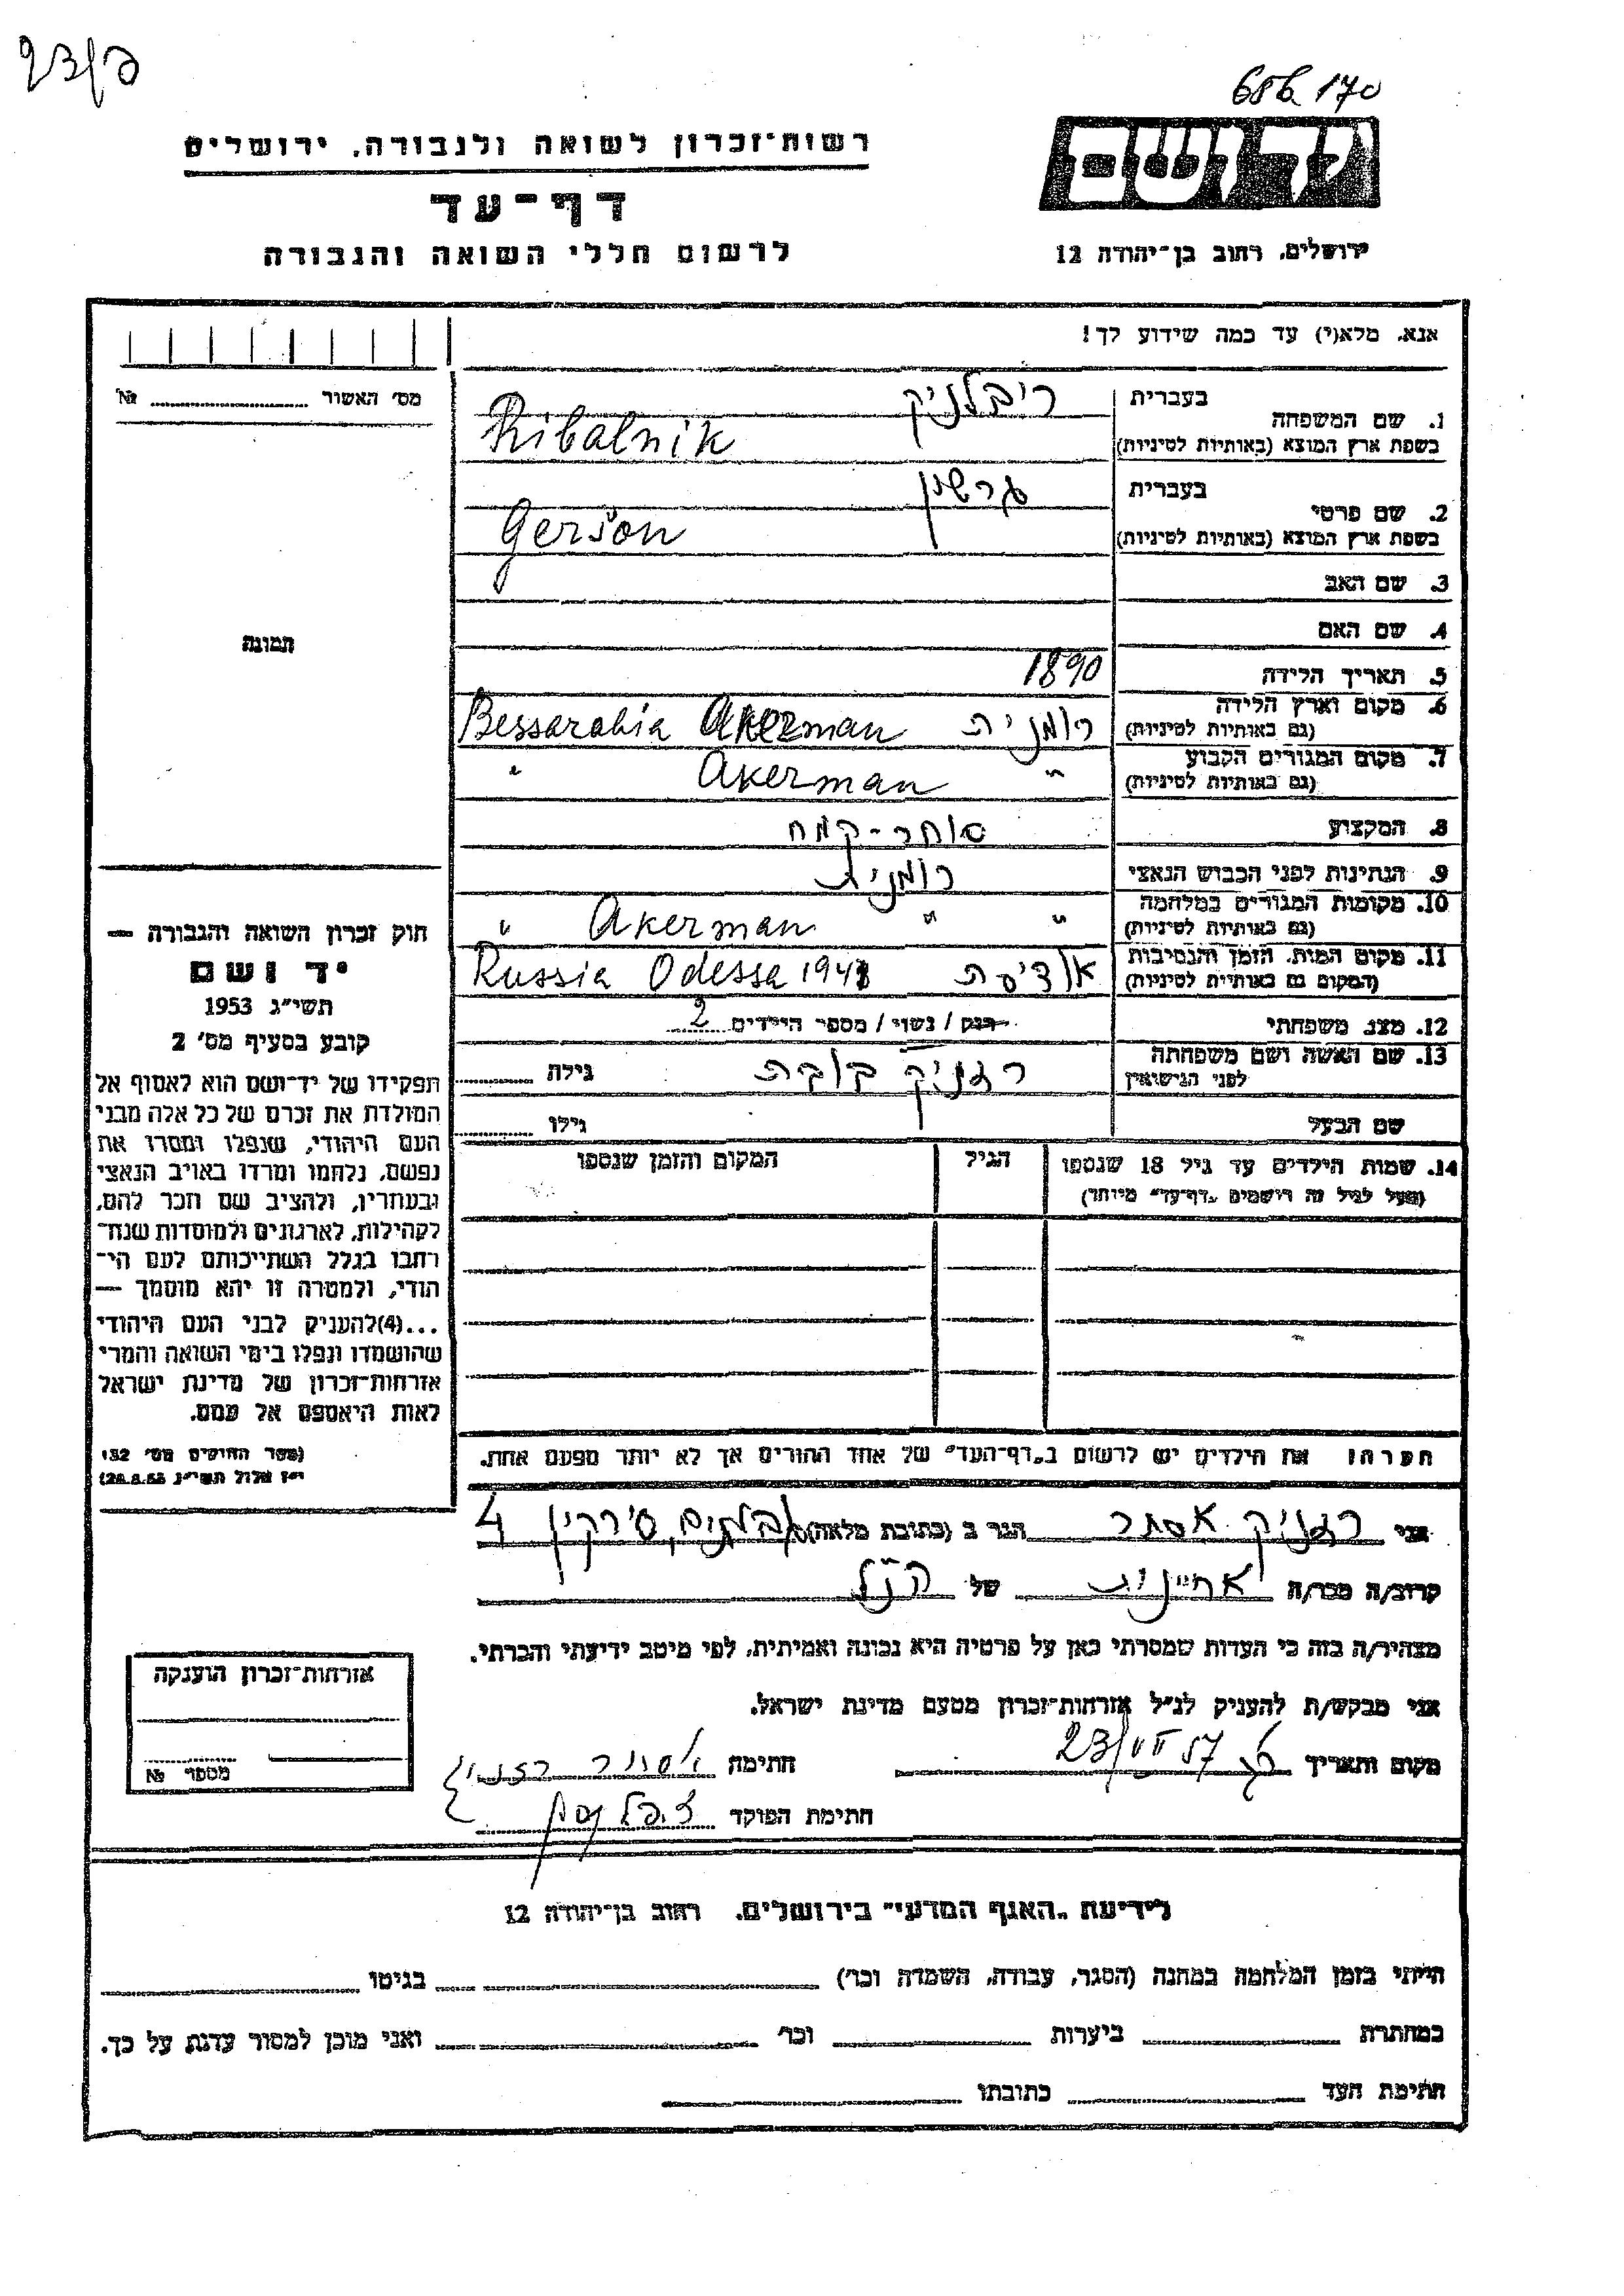 656 170
יד ושם
ירושלים, רחוב בן־יהודה 12
רשות־זכרון לשואה ולגבורה, ירושלים
דף־עד
לרשום חללי השואה והגבורה
אנא, מלא(י) עד כמה שידוע לך!
מס' האשור ........ №
1. שם המשפחה
בעברית ריבלניק
בשפת ארץ המוצא (באותיות לטיניות) Ribalnik
2. שם פרטי
בעברית גרשון
בשפת ארץ המוצא (באותיות לטיניות) Geršon
3. שם האב
4. שם האם
5. תאריך הלידה 1890
6. מקום וארץ הלידה (גם באותיות לטיניות) רומניה Akerman Bessarabia
7. מקום המגורים הקבוע (גם באותיות לטיניות) " Akerman "
8. המקצוע סוחר-קמח
9. הנתינות לפני הכבוש הנאצי רומנית
10. מקומות המגורים במלחמה (גם באותיות לטיניות) " " Akerman "
11. מקום המות, הזמן והנסיבות (המקום גם באותיות לטיניות) אודיסה Russia Odessa
12. מצב משפחתי רווק / נשוי / מספר הילדים 2
13. שם האשה ושם משפחתה לפני הנישואין רזניק גילה
שם הבעל גילו
14. שמות הילדים עד גיל 18 שנספו
(מעל לגיל זה רושמים "דף־עד" מיוחד)
הגיל
המקום והזמן שנספו
תמונה
חוק זכרון השואה והגבורה —
יד ושם
תשי"ג 1953
קובע בסעיף מס' 2
תפקידו של יד־ושם הוא לאסוף אל
המולדת את זכרם של כל אלה מבני
העם היהודי, שנפלו ומסרו את
נפשם, נלחמו ומרדו באויב הנאצי
ובעוזריו, ולהציב שם וזכר להם,
לקהילות, לארגונים ולמוסדות שנח־
רבו בגלל השתייכותם לעם הי־
הודי, ולמטרה זו יהא מוסמך —
...(4)להעניק לבני העם היהודי
שהושמדו ונפלו בימי השואה והמרי
אזרחות־זכרון של מדינת ישראל
לאות היאספם אל עמם.
(ספר החוקים מס' 132
י"ז אלול תשי"ג 28.8.53)
הערה: את הילדים יש לרשום ב"דף־העד" של אחד ההורים אך לא יותר מפעם אחת.
אני רזניק אסתר הגר ב (כתובת מלאה) סירקין 4
קרוב/ה מכר/ה אחיינית של הנ"ל
מצהיר/ה בזה כי העדות שמסרתי כאן על פרטיה היא נכונה ואמיתית, לפי מיטב ידיעתי והכרתי.
אני מבקש/ת להעניק לנ"ל אזרחות־זכרון מטעם מדינת ישראל.
מקום ותאריך 23/VII 57 חתימה אסתר רזניק
חתימת הפוקד
אזרחות־זכרון הוענקה
מספר №
לידיעת "האגף המדעי" בירושלים, רחוב בן־יהודה 12
הייתי בזמן המלחמה במחנה (הסגר, עבודה, השמדה וכו') בגיטו
במחתרת ביערות וכו' ואני מוכן למסור עדות על כך.
חתימת העד כתובתו